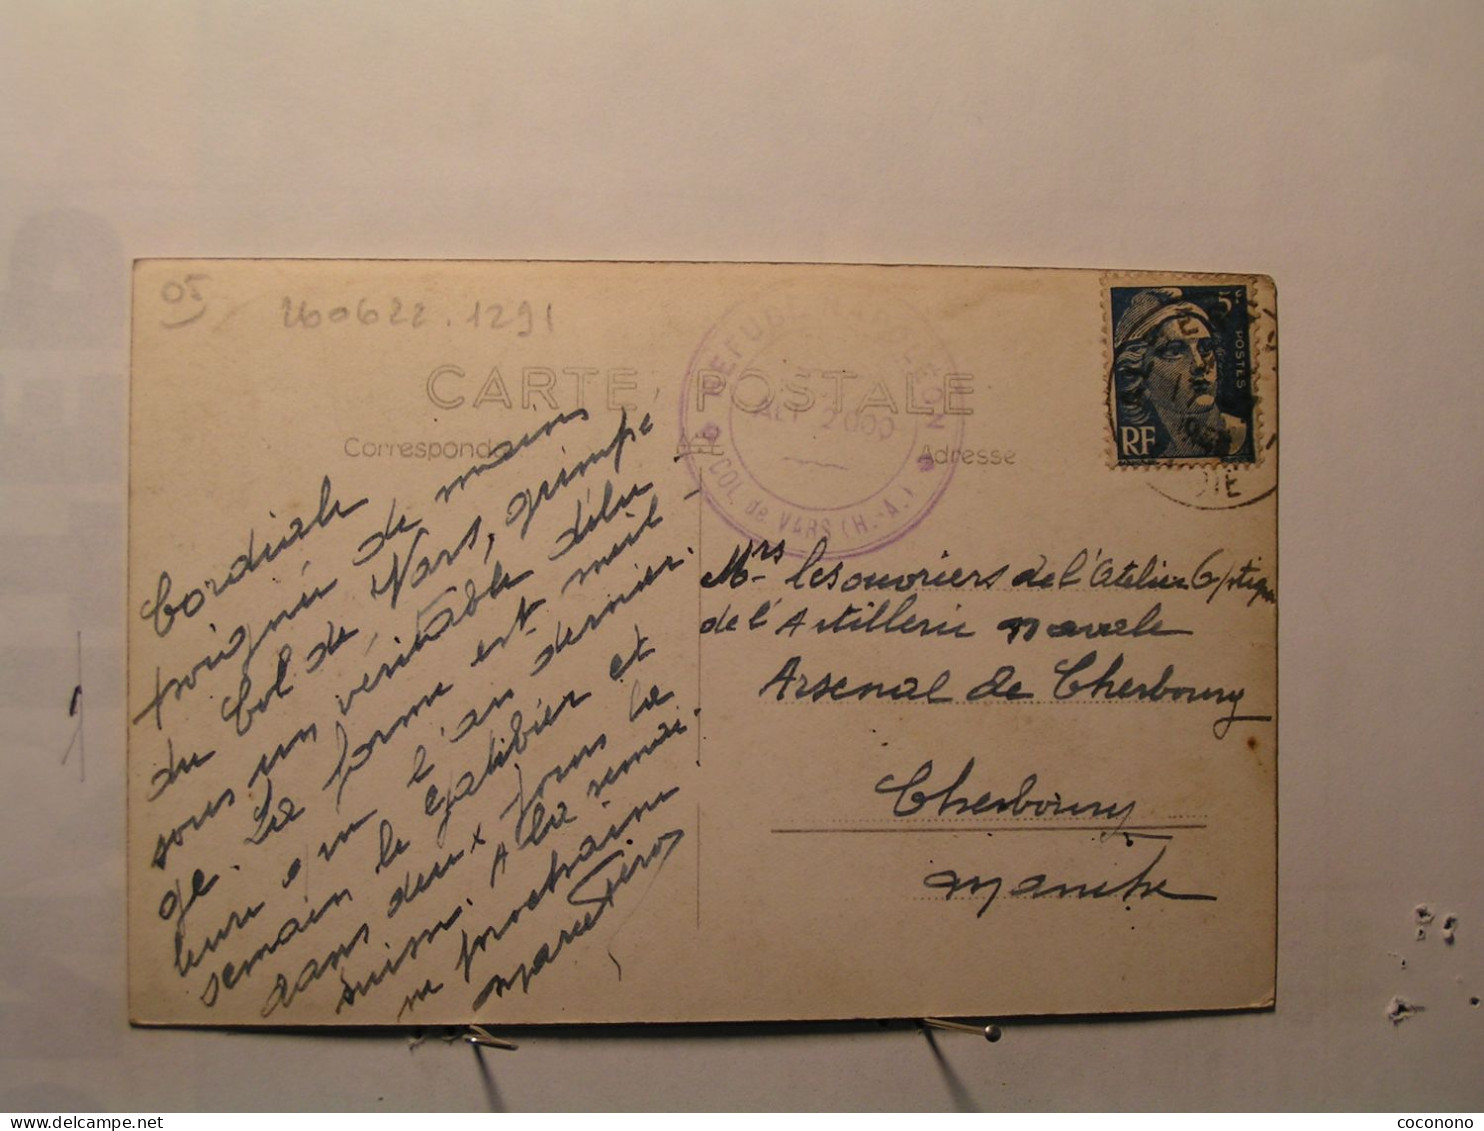 05
260622.1291
CARTE POSTALE
Correspondance
Adresse
REFUGE NAPOLEON
ALT. 2.000
COL de VARS (H.-A.)
5F
POSTES
RF
Cordiale
poignée de mains
du Col de Vars, grimpé
sous un véritable délu
ge. La forme est meil
leure que l'an dernier.
demain le Galibier et
dans deux jours la
suisse. A la semai
ne prochaine
Mrs les ouvriers de l'Atelier
de l'Artillerie navale
Arsenal de Cherbourg
Cherbourg
Manche
coconono